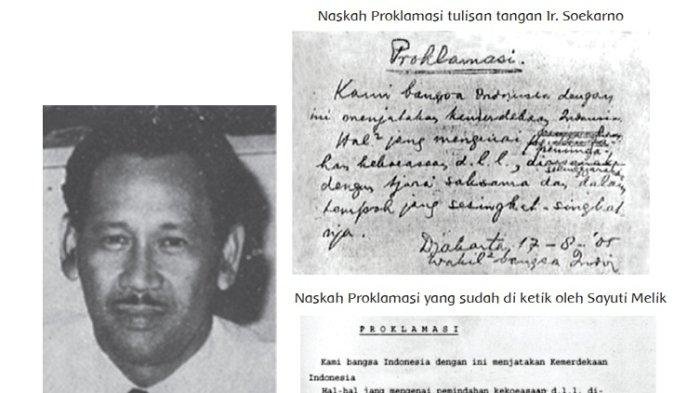 Naskah Proklamasi tulisan tangan Ir. Soekarno
Proklamasi.
Kami bangsa Indonesia dengan
ini menjatakan kemerdekaan Indonesia.
Hal² jang mengenai
peminda-
han kekoeasaan d.l.l., diselenggarakan
dengan tjara saksama dan dalam
tempoh jang sesingkat-singkat
nja.
Djakarta, 17-8-'05
Wakil² bangsa Indon
Naskah Proklamasi yang sudah di ketik oleh Sayuti Melik
P R O K L A M A S I
Kami bangsa Indonesia dengan ini menjatakan Kemerdekaan
Indonesia
Hal-hal jang mengenai pemindahan kekoeasaan d.l.l. di-